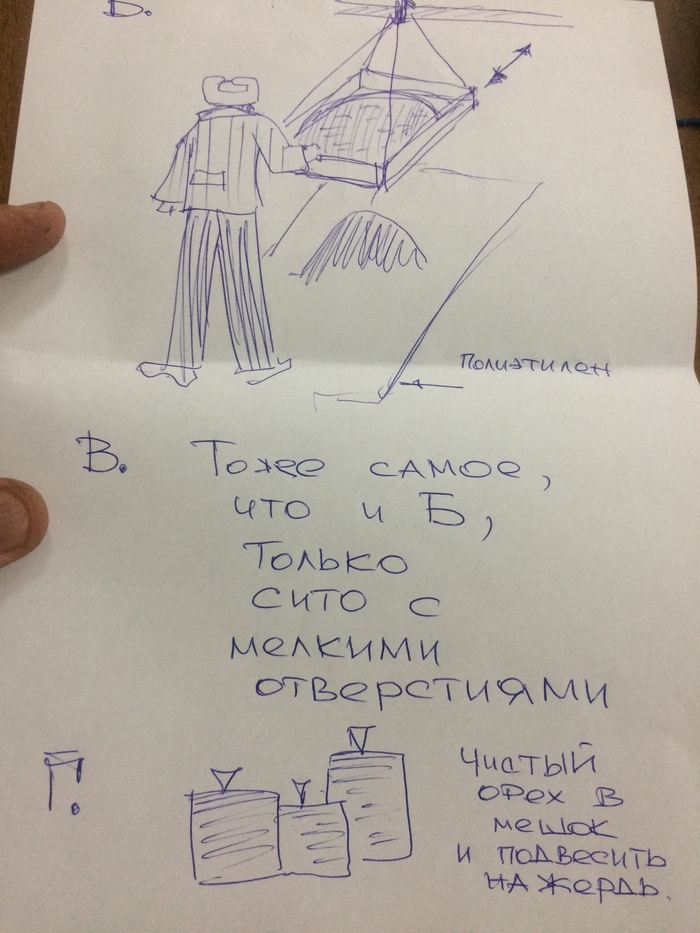 Б.
Полиэтилен
В. Тоже самое,
что и Б,
только
сито с
мелкими
отверстиями
Г.
Чистый
орех в
мешок
и подвесить
на жердь.